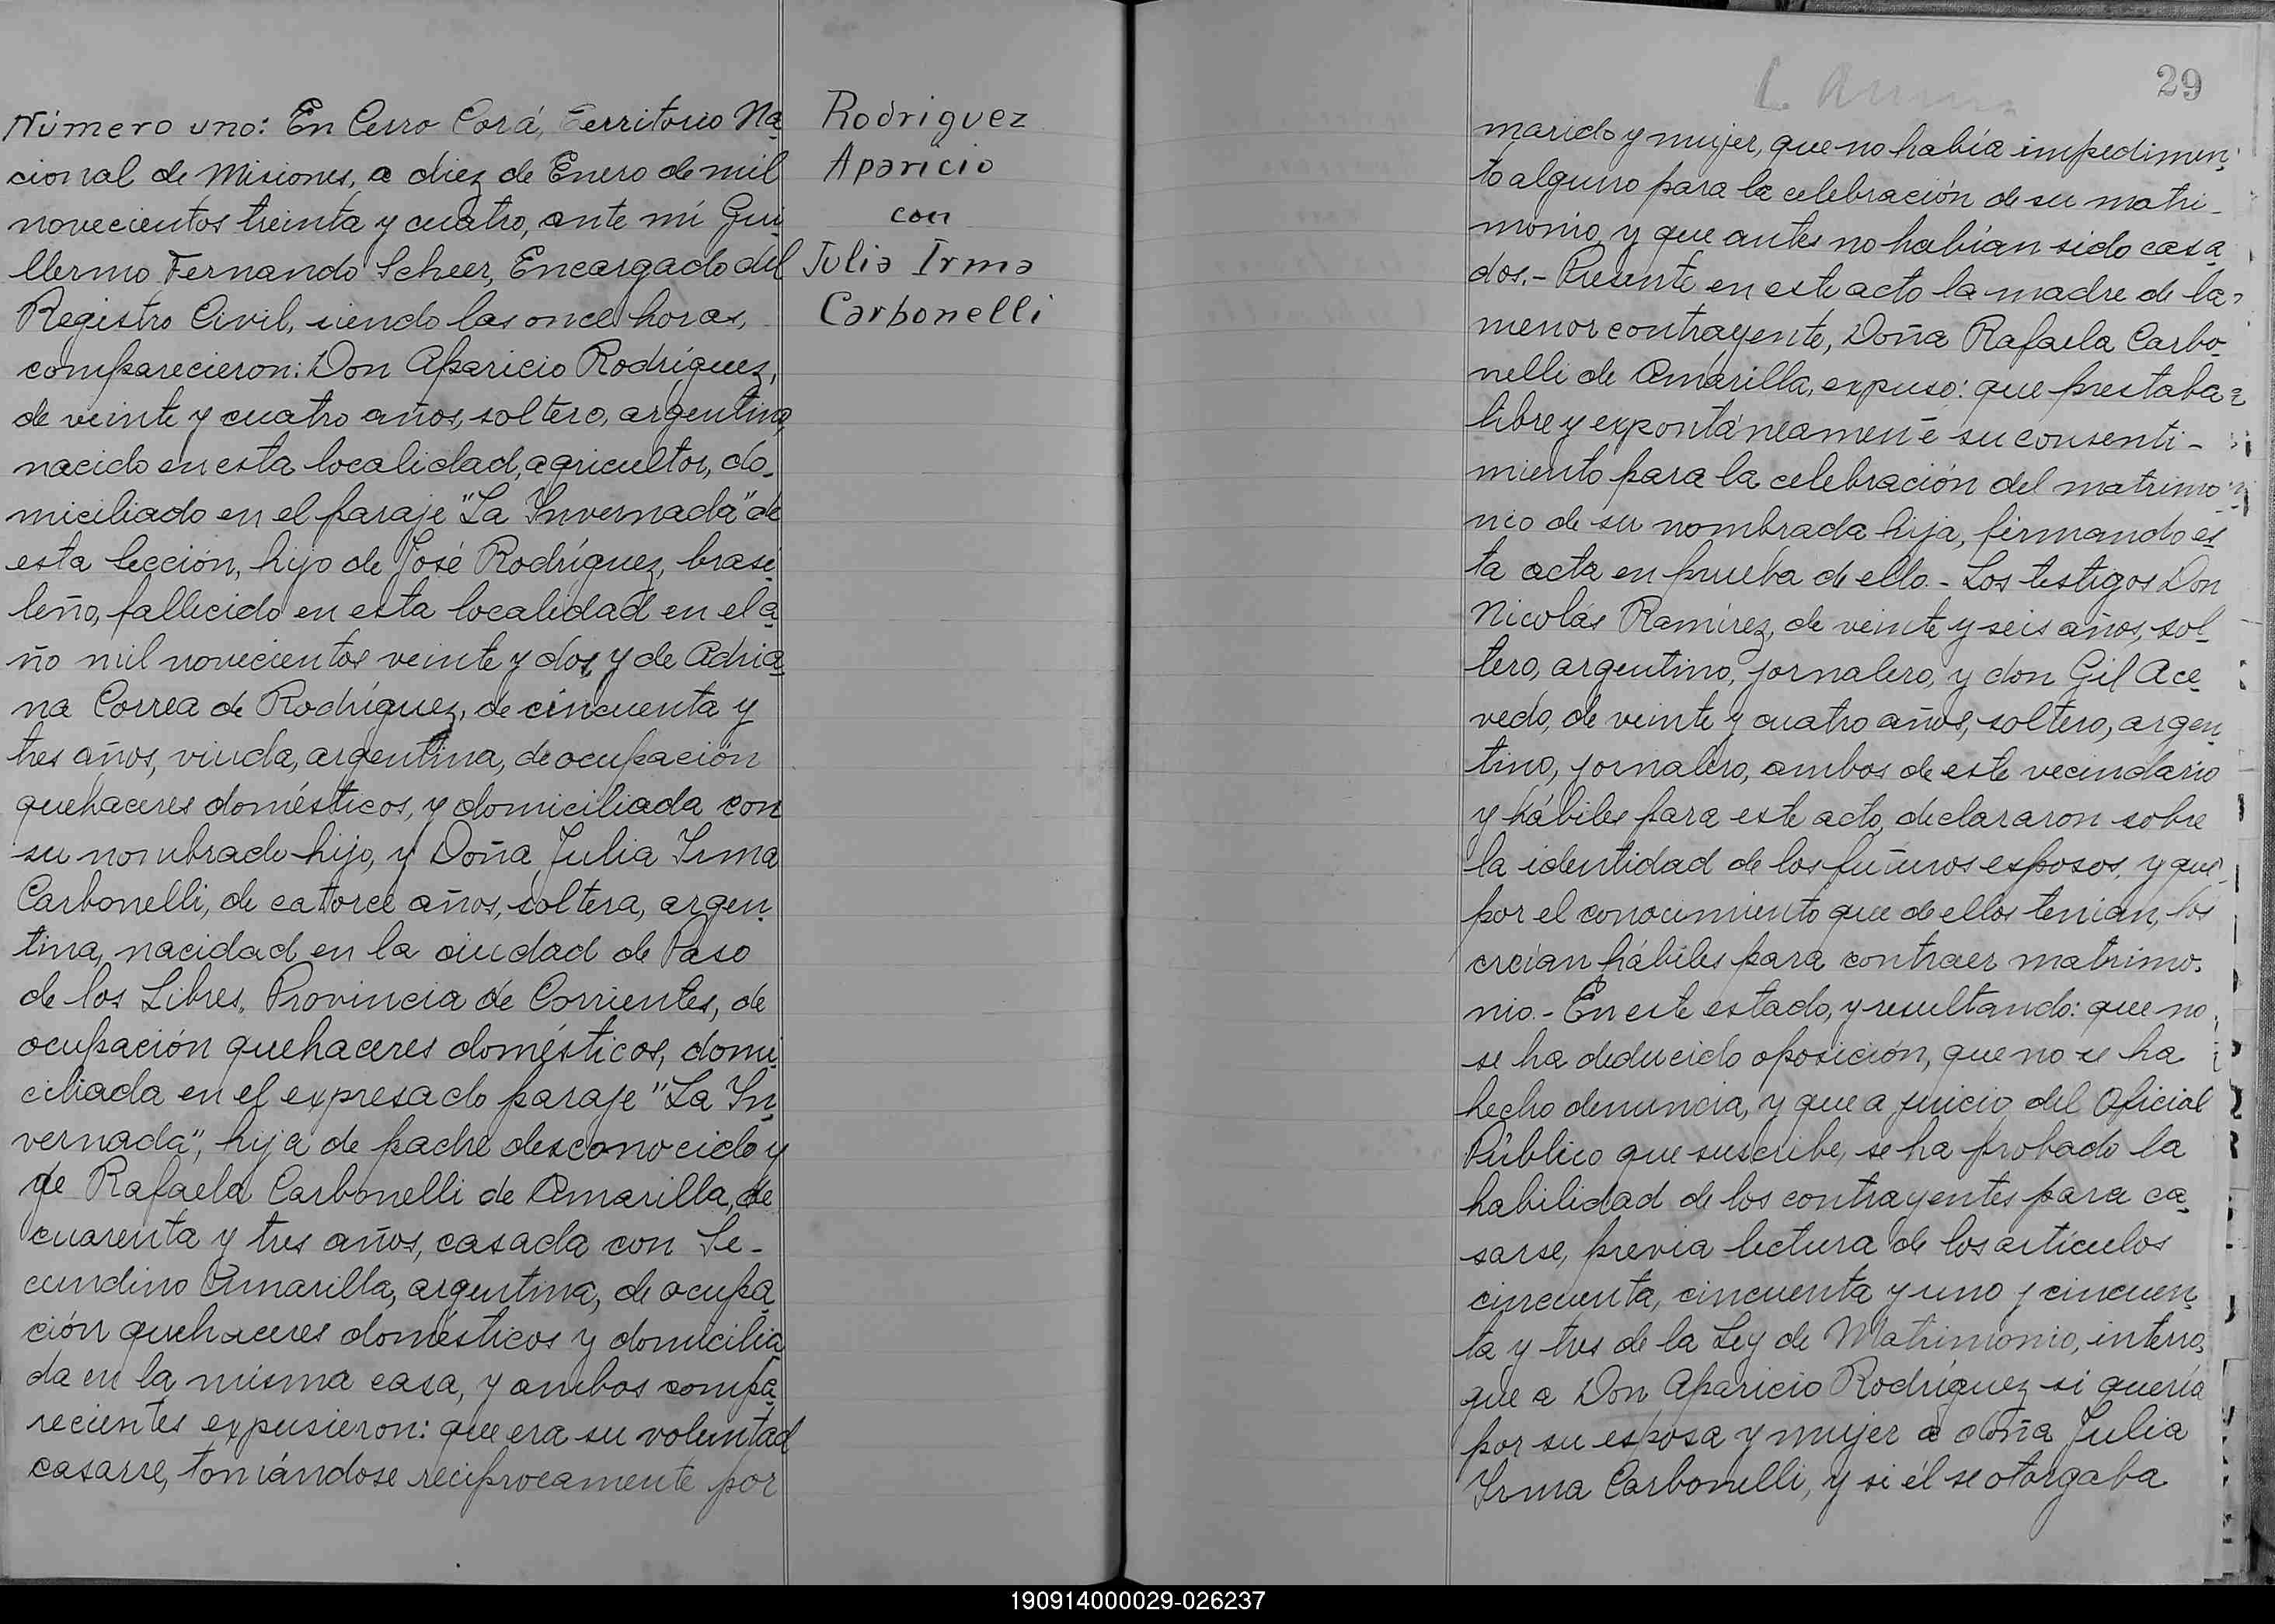 Número uno: En Cerro Corá, Territorio Na
cional de Misiones, a diez de Enero de mil
novecientos treinta y cuatro, ante mí Gui
llermo Fernando Scheer, Encargado del
Registro Civil, siendo las once horas,
comparecieron: Don Aparicio Rodríguez,
de veinte y cuatro años, soltero, argentino,
nacido en esta localidad, agricultor, do_
miciliado en el paraje "La Invernada" de
esta Sección, hijo de José Rodríguez, brasi
leño, fallecido en esta localidad en el a
ño mil novecientos veinte y dos, y de Adria
na Correa de Rodríguez, de cincuenta y
tres años, viuda, argentina, de ocupación
quehaceres domésticos, y domiciliada con
su nombrado hijo, y Doña Julia Irma
Carbonelli, de catorce años, soltera, argen
tina, nacidad en la ciudad de Paso
de los Libres, Provincia de Corrientes, de
ocupación quehaceres domésticos, domi
ciliada en el expresado paraje "La In
vernada", hija de padre desconocido y
de Rafaela Carbonelli de Amarilla, de
cuarenta y tres años, casada con Se-
cundino Amarilla, argentina, de ocupa
ción quehaceres domésticos y domicilia
da en la misma casa, y ambos compa
recientes expusieron: que era su voluntad
casarse, tomándose recíprocamente por
Rodriguez
Aparicio
con
Julia Irma
Carbonelli
29
marido y mujer, que no había impedimen
to alguno para la celebración de su matri_
monio, y que antes no habían sido casa
dos.- Presente en este acto la madre de la
menor contrayente, Doña Rafaela Carbo
nelli de Amarilla, expuso: que prestaba
libre y expontáneamente su consenti-
miento para la celebración del matrimo
nio de su nombrada hija, firmando es
ta acta en prueba de ello.- Los testigos Don
Nicolás Ramírez, de veinte y seis años, sol
tero, argentino, jornalero, y don Gil Ace
vedo, de veinte y cuatro años, soltero, argen
tino, jornalero, ambos de este vecindario
y hábiles para este acto, declararon sobre
la identidad de los futuros esposos, y que
por el conocimiento que de ellos tenían, los
creían hábiles para contraer matrimo-
nio.- En este estado, y resultando: que no
se ha deducido oposición, que no se ha
hecho denuncia, y que a juicio del Oficial
Público que suscribe, se ha probado la
habilidad de los contrayentes para ca
sarse, previa lectura de los artículos
cincuenta, cincuenta y uno y cincuen
ta y tres de la Ley de Matrimonio, interro
gue a Don Aparicio Rodríguez si quería
por su esposa y mujer a doña Julia
Irma Carbonelli, y si él se otorgaba
190914000029-026237